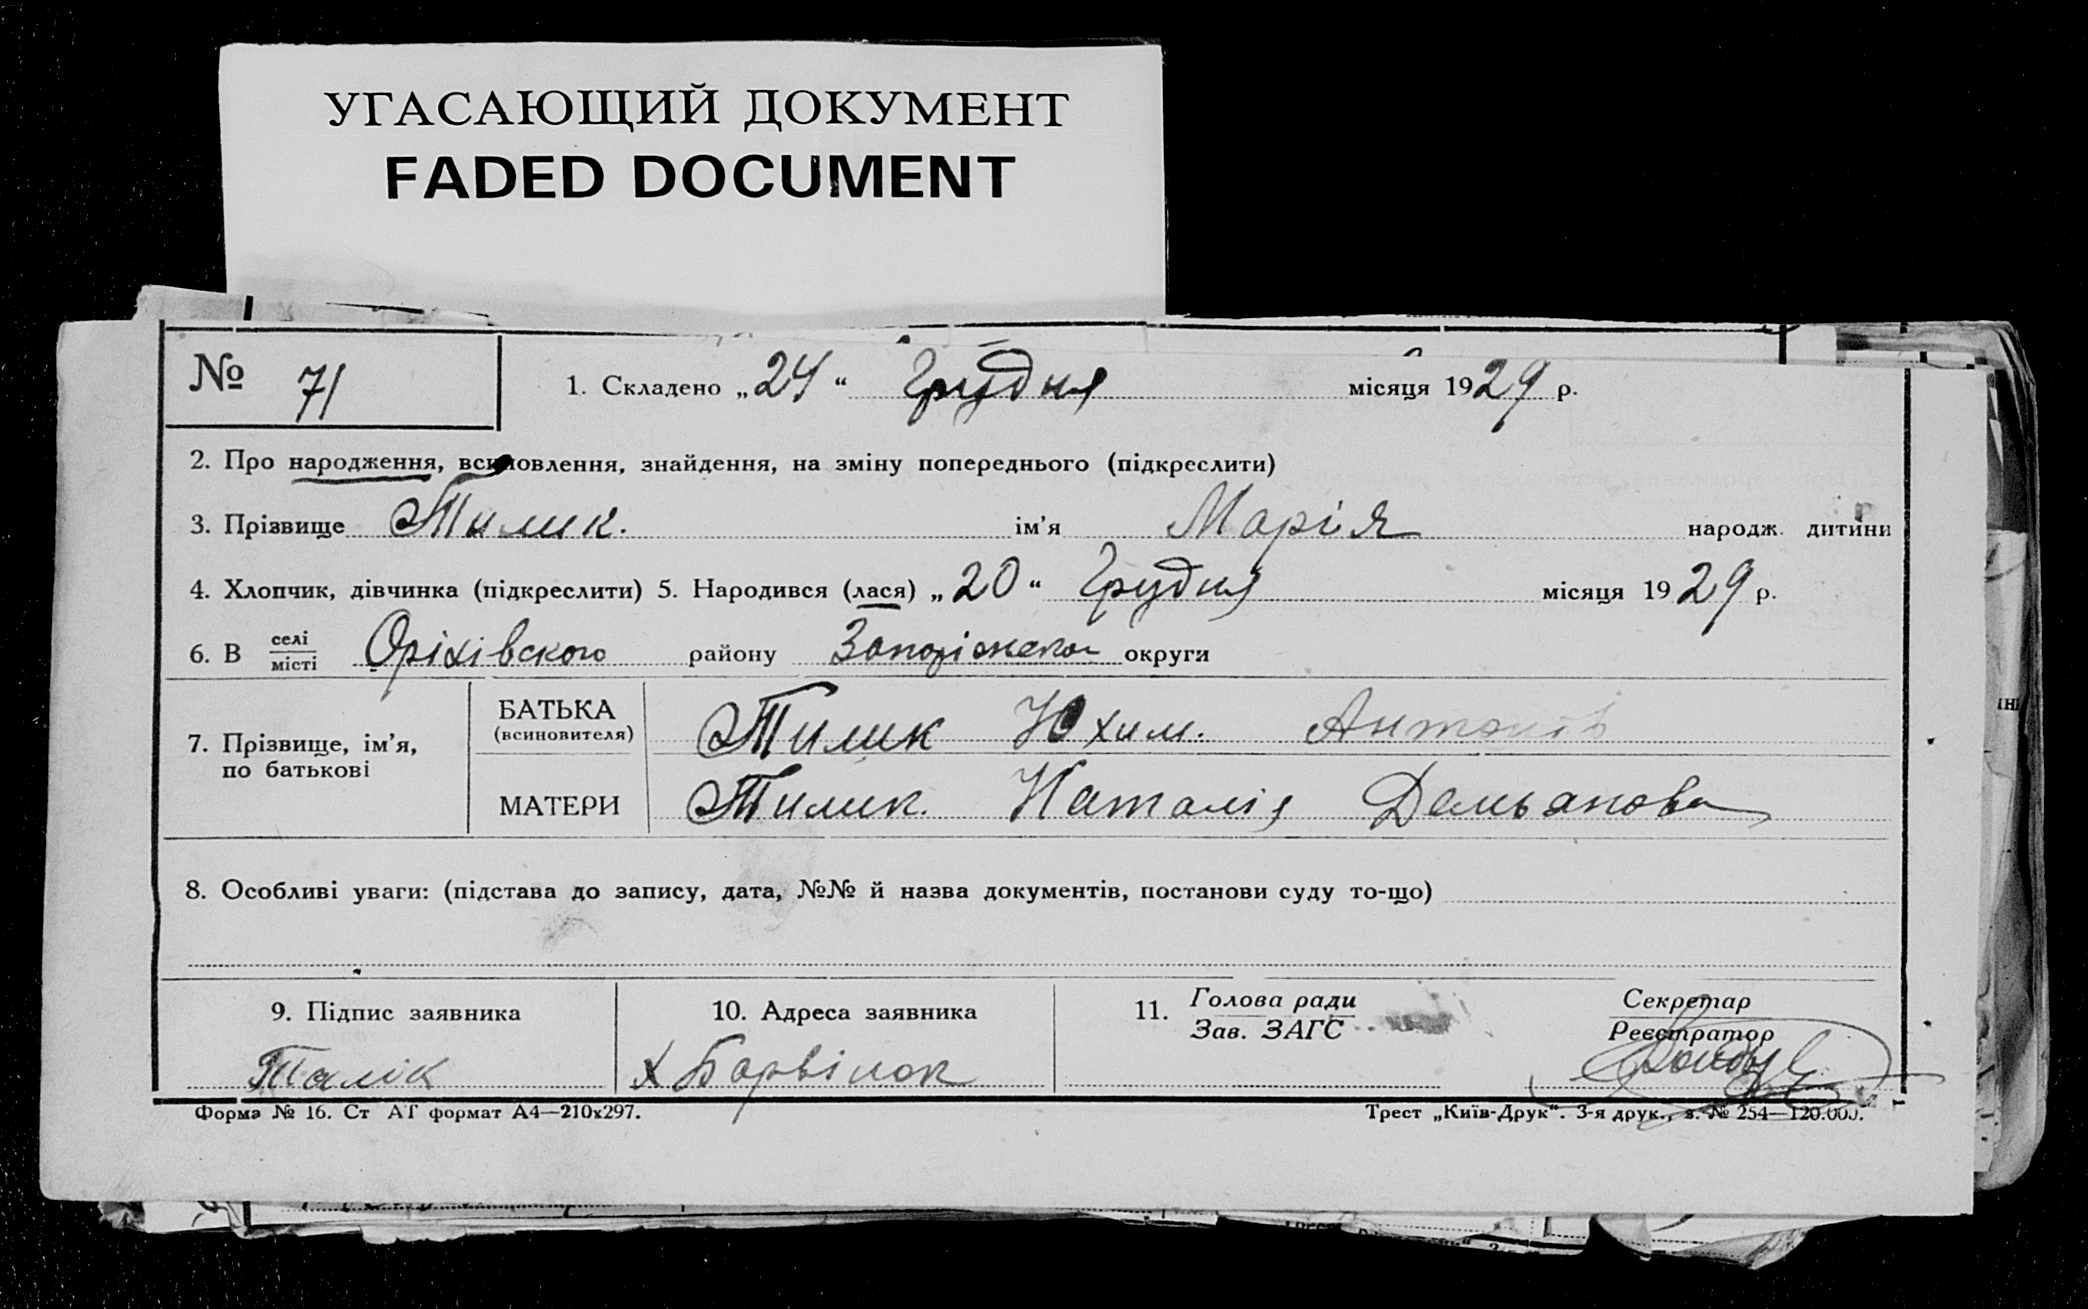 УГАСАЮЩИЙ ДОКУМЕНТ
FADED DOCUMENT
№ 71
1. Складено „24“ Грудня місяця 1929 р.
2. Про народження, всиновлення, знайдення, на зміну попереднього (підкреслити)
3. Прізвище Тилик. ім’я Марія народж. дитини
4. Хлопчик, дівчинка (підкреслити) 5. Народився (лася) „20“ Грудня місяця 1929 р.
6. В селі місті Оріхівского району Запоріжского округи
7. Прізвище, ім’я, по батькові
БАТЬКА (всиновителя) Тилик Юхим. Антонів
МАТЕРИ Тилик. Наталія Демьанова
8. Особливі уваги: (підстава до запису, дата, №№ й назва документів, постанови суду то-що)
9. Підпис заявника
Талік
10. Адреса заявника
х Барвінок
11. Голова ради
Зав. ЗАГС
Секретар
Реєстратор
Форма № 16. Ст АТ формат А4—210х297.
Трест „Київ-Друк“. 3-я друк., з. № 254—120.000.